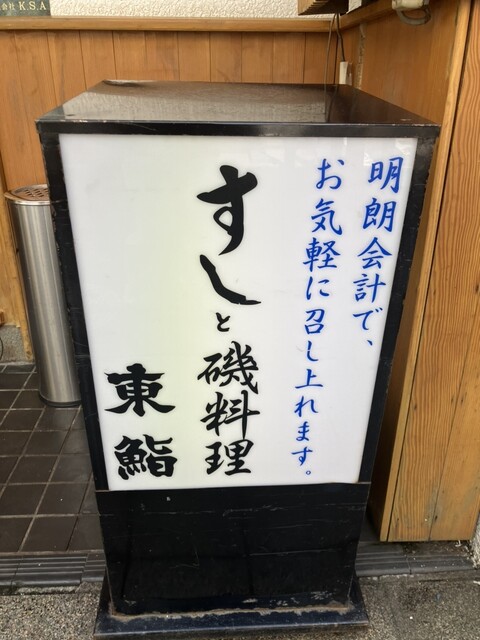 会社 K.S.A
明朗会計で、
お気軽に召し上れます。
すしと磯料理
東鮨